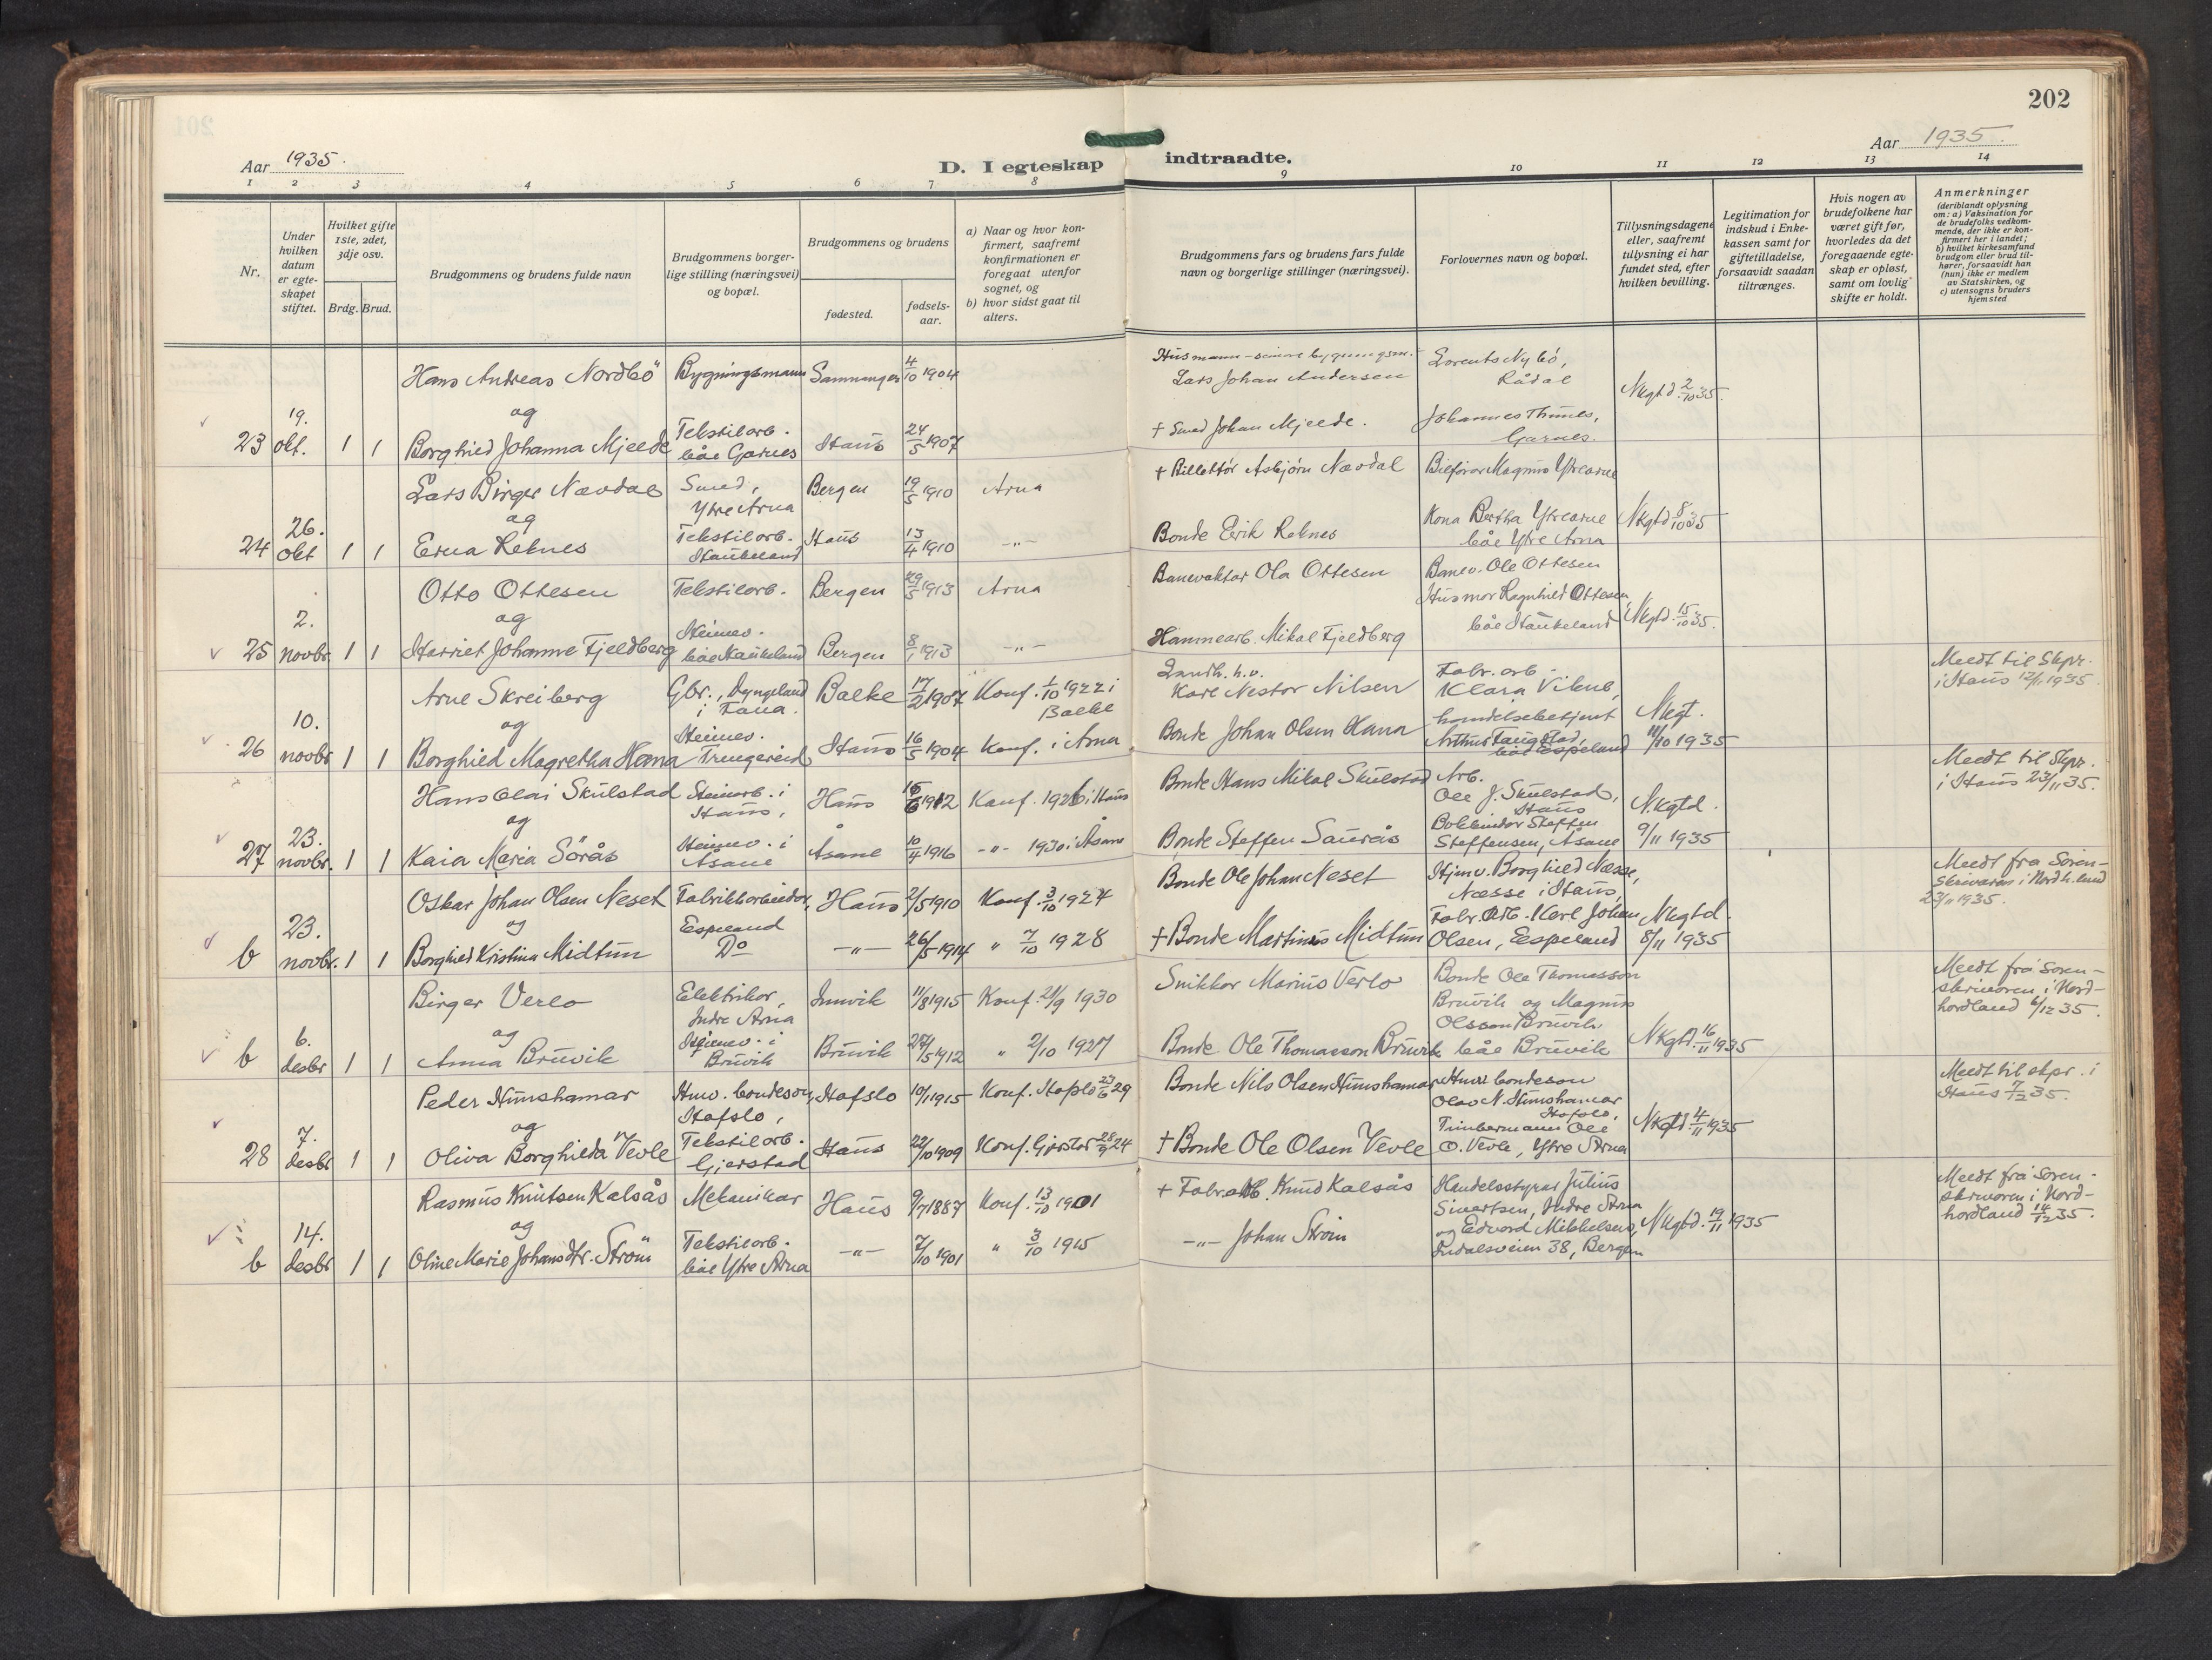 202
Aar 1935.
D. I egteskap indtraadte.
Aar 1935.
1 2 3 4 5 6 7 8 9 10 11 12 13 14
Nr.
Under
hvilken
datum
er egte-
skapet
stiftet.
Hvilket gifte
1ste, 2det,
3dje osv.
Brdg. Brud.
Brudgommens og brudens fulde navn
Brudgommens borger-
lige stilling (næringsvei)
og bopæl.
Brudgommens og brudens
fødested.
fødsels-
aar.
a) Naar og hvor kon-
firmert, saafremt
konfirmationen er
foregaat utenfor
sognet, og
b) hvor sidst gaat til
alters.
Brudgommens fars og brudens fars fulde
navn og borgerlige stillinger (næringsvei).
Forlovernes navn og bopæl.
Tillysningsdagene
eller, saafremt
tillysning ei har
fundet sted, efter
hvilken bevilling.
Legitimation for
indskud i Enke-
kassen samt for
giftetilladelse,
forsaavidt saadan
tiltrænges.
Hvis nogen av
brudefolkene har
været gift før,
hvorledes da det
foregaaende egte-
skap er opløst,
samt om lovlig
skifte er holdt.
Anmerkninger
(deriblandt oplysning
om: a) Vaksination for
de brudefolks vedkom-
mende, der ikke er kon-
firmert her i landet;
b) hvilket kirkesamfund
brudgom eller brud til-
hører, forsaavidt han
(hun) ikke er medlem
av Statskirken, og
c) utensogns bruders
hjemsted
Hans Andreas Nordbö Bygningsmann Samnanger 4/10 1904 Husmann - seinere bygningsm. Lorents Nybö,
Lars Johan Andersen Rådal Nkgtd. 2/10 35.
19. og
23 okt. 1 1 Borghild Johanna Mjelde Tekstilarb. Haus 24/5 1907 † Smed Johan Mjelde. Johannes Thunes,
båe Garnes Garnes.
Lars Birger Nævdal Smed, Bergen 19/5 1910 Arna † Billettör Asbjörn Nævdal Bilförar Magnus Ytrearne
Ytre Arna
26. og Kona Bertha Ytrearne Nkgtd 8/10 35
24 Okt 1 1 Erna Reknes Tekstilarb. Haus 13/4 1910 -"- Bonde Erik Reknes båe Ytre Arna
Haukeland
Otto Ottesen Tekstilarb. Bergen 29/5 1913 Arna Banevaktar Ola Ottesen Banev. Ole Ottesen
2. og Husmor Ragnhild Ottesen,
25 novbr. 1 1 Harriet Johanne Fjeldberg Heimev. Bergen 8/1 1913 -"- Hammearb. Mikal Fjeldberg båe Haukeland Nkgtd. 15/10 35.
båe Haukeland
Arne Skreiberg Gbr., Dyngeland Balke 17/2 1907 Konf. 1/10 1922 i Landh. h.v. Fabr. arb. Meldt til Skpr.
i Fana. Balke Karl Nestor Nilsen Klara Vikne, i Haus 12/11 1935.
10. og handelsbetjent Nkgt.
26 novbr 1 1 Borghild Magretha Hana Heimev. Haus 16/5 1904 Konf. i Arna Bonde Johan Olsen Hana Arthur Haugstad, 11/10 1935
Trengereid båe Espeland
Hans Olai Skulstad Steinarb. i Haus 15/6 1912 Konf. 1926 i Haus Bonde Hans Mikal Skulstad Arb. Meldt til Skpr.
Haus, Ole J. Skulstad, i Haus 23/11 35.
23. og Haus N.kgtd.
27 novbr. 1 1 Kaia Maria Sörås Heimev. i Åsane 10/4 1916 -"- 1930 i Åsane Bonde Steffen Saurås Bokbindar Steffen 9/11 1935
Åsane Steffensen, Åsane
Oskar Johan Olsen Neset Fabrikkarbeider, Haus 2/5 1910 Konf. 3/10 1924 Bonde Ole Johan Neset Hjmv. Borghild Næsse, Meldt fra Soren-
Espeland Næsse i Haus, skrivaren i Nordh.land
23/11 1935.
23. og Fabr. Arb. Karl Johan Nkgtd.
b novbr. 1 1 Borghild Kristina Midtun Do -"- 26/5 1914 " 7/10 1928 † Bonde Martinus Midtun Olsen, Espeland 8/11 1935
Birger Verlo Elektrikar, Innvik 11/8 1915 Konf. 21/9 1930 Snikkar Marius Verlo Bonde Ole Thomasson Meldt frå Soren-
Indre Arna Bruvik og Magnus skrivaren i Nord-
6. og Olsson Bruvik, hordland 6/12 35.
b desbr 1 1 Anna Bruvik Heimev. i Bruvik 27/5 1912 " 2/10 1927 Bonde Ole Thomasson Bruvik båe Bruvik Nkgtd. 16/11 1935
Bruvik
Peder Humshamar Hmv. bondeson, Hafslo 10/1 1915 Konf. Hafslo 23/6 29 Bonde Nils Olsen Humshamar Hmv. bondeson Meldt til skpr. i
Hafslo, Olav N. Humshamar Haus 7/12 35.
7. og Hafslo,
28 desbr 1 1 Oliva Borghilda Vevle Tekstilarb. Haus 22/10 1909 Konf. Gjerstad 28/9 24 † Bonde Ole Olsen Vevle Timbermann Ole Nkgtd 4/11 1935
Gjerstad O. Vevle, Ytre Arna
Rasmus Knutsen Kalsås Mekanikar Haus 9/7 1887 Konf. 13/10 1901 † Fabr. arb. Knud Kalsås Handelsstyrar Julius Meldt frå Soren-
Sivertsen, Indre Arna skrivaren i Nord-
14. og og Edvard Mikkelsens, Nkgtd. 19/11 1935 hordland 14/12 35.
b desbr 1 1 Oline Marie Johansdtr. Ström Tekstilarb. -"- 7/10 1901 " 3/10 1915 -"- Johan Ström Indalsveien 38, Bergen
båe Ytre Arna